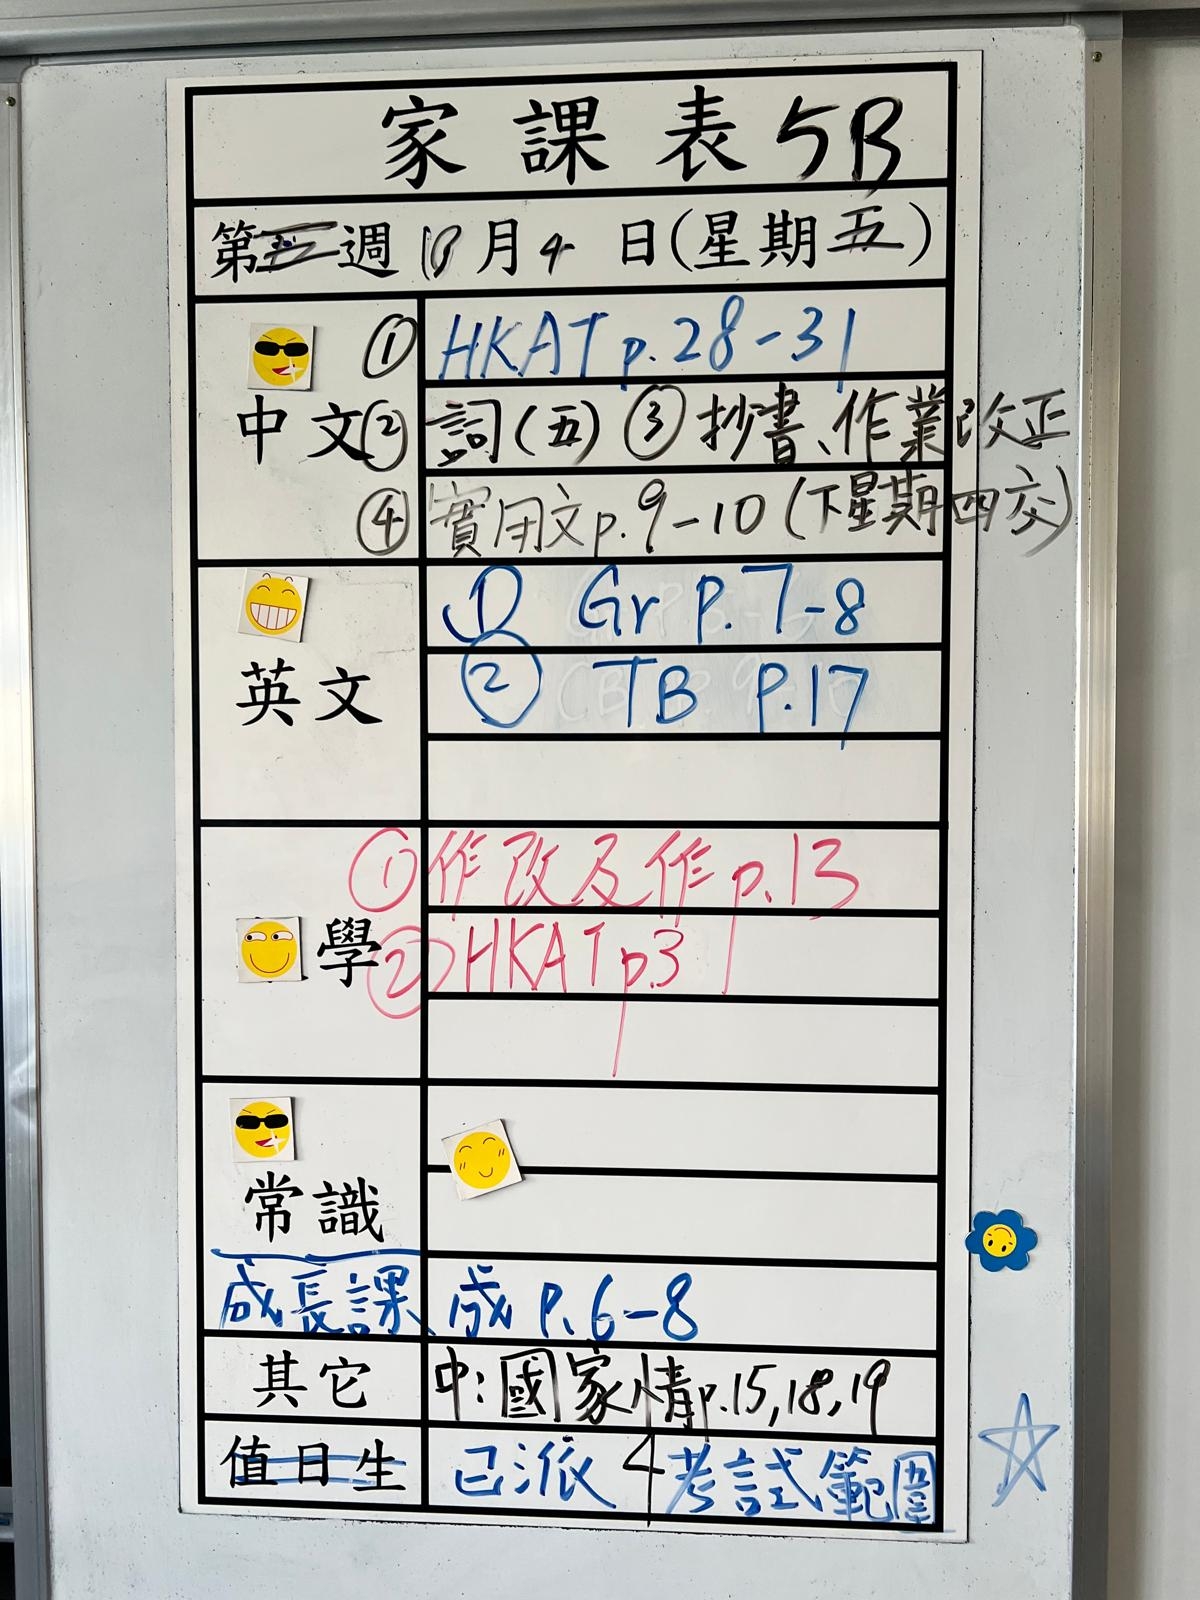 家課表 5B
第週 10月4日(星期五)
中文
① HKAT p.28-31
② 詞(五) ③ 抄書、作業改正
④ 實用文p.9-10 (下星期四交)
英文
① Gr P.7-8
② TB P.17
學
① 作改及作p.13
② HKAT p3
常識
成長課、成 P.6-8
其它
中:國家情p.15,18,19
值日生
已派 4 考試範圍